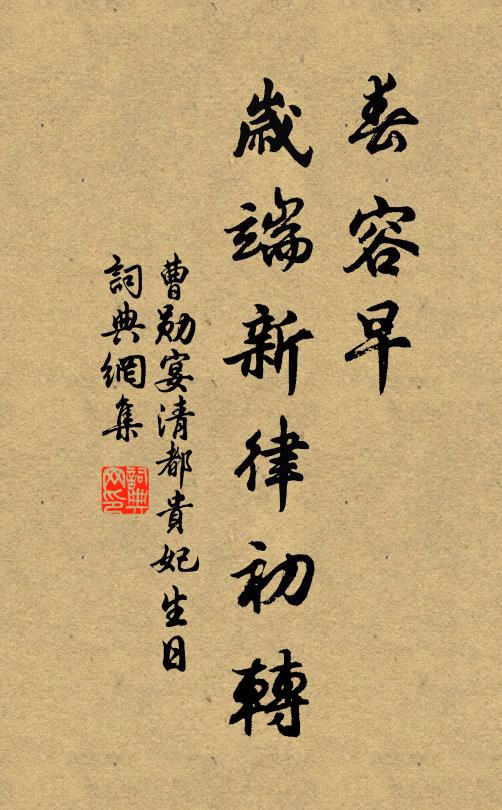 春容早
歲端新律初轉
曹勛宴清都貴妃生日
詞典網集
詞典网印